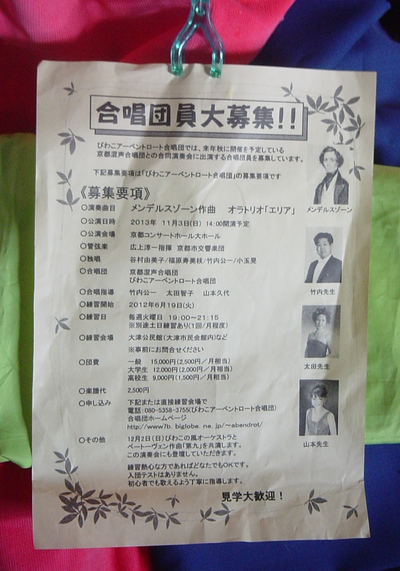 合唱団員大募集!!
びわこアーベントロート合唱団では、来年秋に開催を予定している
京都混声合唱団との合同演奏会に出演する合唱団員を募集しています。
下記募集要項は「びわこアーベントロート合唱団」の募集要項です
《募集要項》
○演奏曲目 メンデルスゾーン作曲 オラトリオ「エリア」
○公演日時 2013年 11月3日(日) 14:00開演予定
○公演会場 京都コンサートホール大ホール
○管弦楽 広上淳一指揮 京都市交響楽団
○独唱 谷村由美子/福原寿美枝/竹内公一/小玉晃
○合唱団 京都混声合唱団
びわこアーベントロート合唱団
○合唱指導 竹内公一 太田智子 山本久代
○練習開始 2012年6月19日(火)
○練習日 毎週火曜日 19:00~21:15
※別途土日練習あり(1回/月程度)
○練習会場 大津公民館(大津市民会館内)など
※事前にお問合せください
○団費 一般 15,000円(2,500円/月相当)
大学生 12,000円(2,000円/月相当)
高校生 9,000円(1,500円/月相当)
○楽譜代 2,500円
○申し込み 下記または直接練習会場で
電話:080-5358-3755(びわこアーベントロート合唱団)
合唱団ホームページ
http://www7b.biglobe.ne.jp/~abendrot/
○その他 12月2日(日)びわこの風オーケストラと
ベートーヴェン作曲「第九」を共演します。
この演奏会にも登壇していただきます。
練習熱心な方であればどなたでもOKです。
入団テストはありません。
初心者でも歌えるよう丁寧に指導します。
見学大歓迎!
メンデルスゾーン
竹内先生
太田先生
山本先生